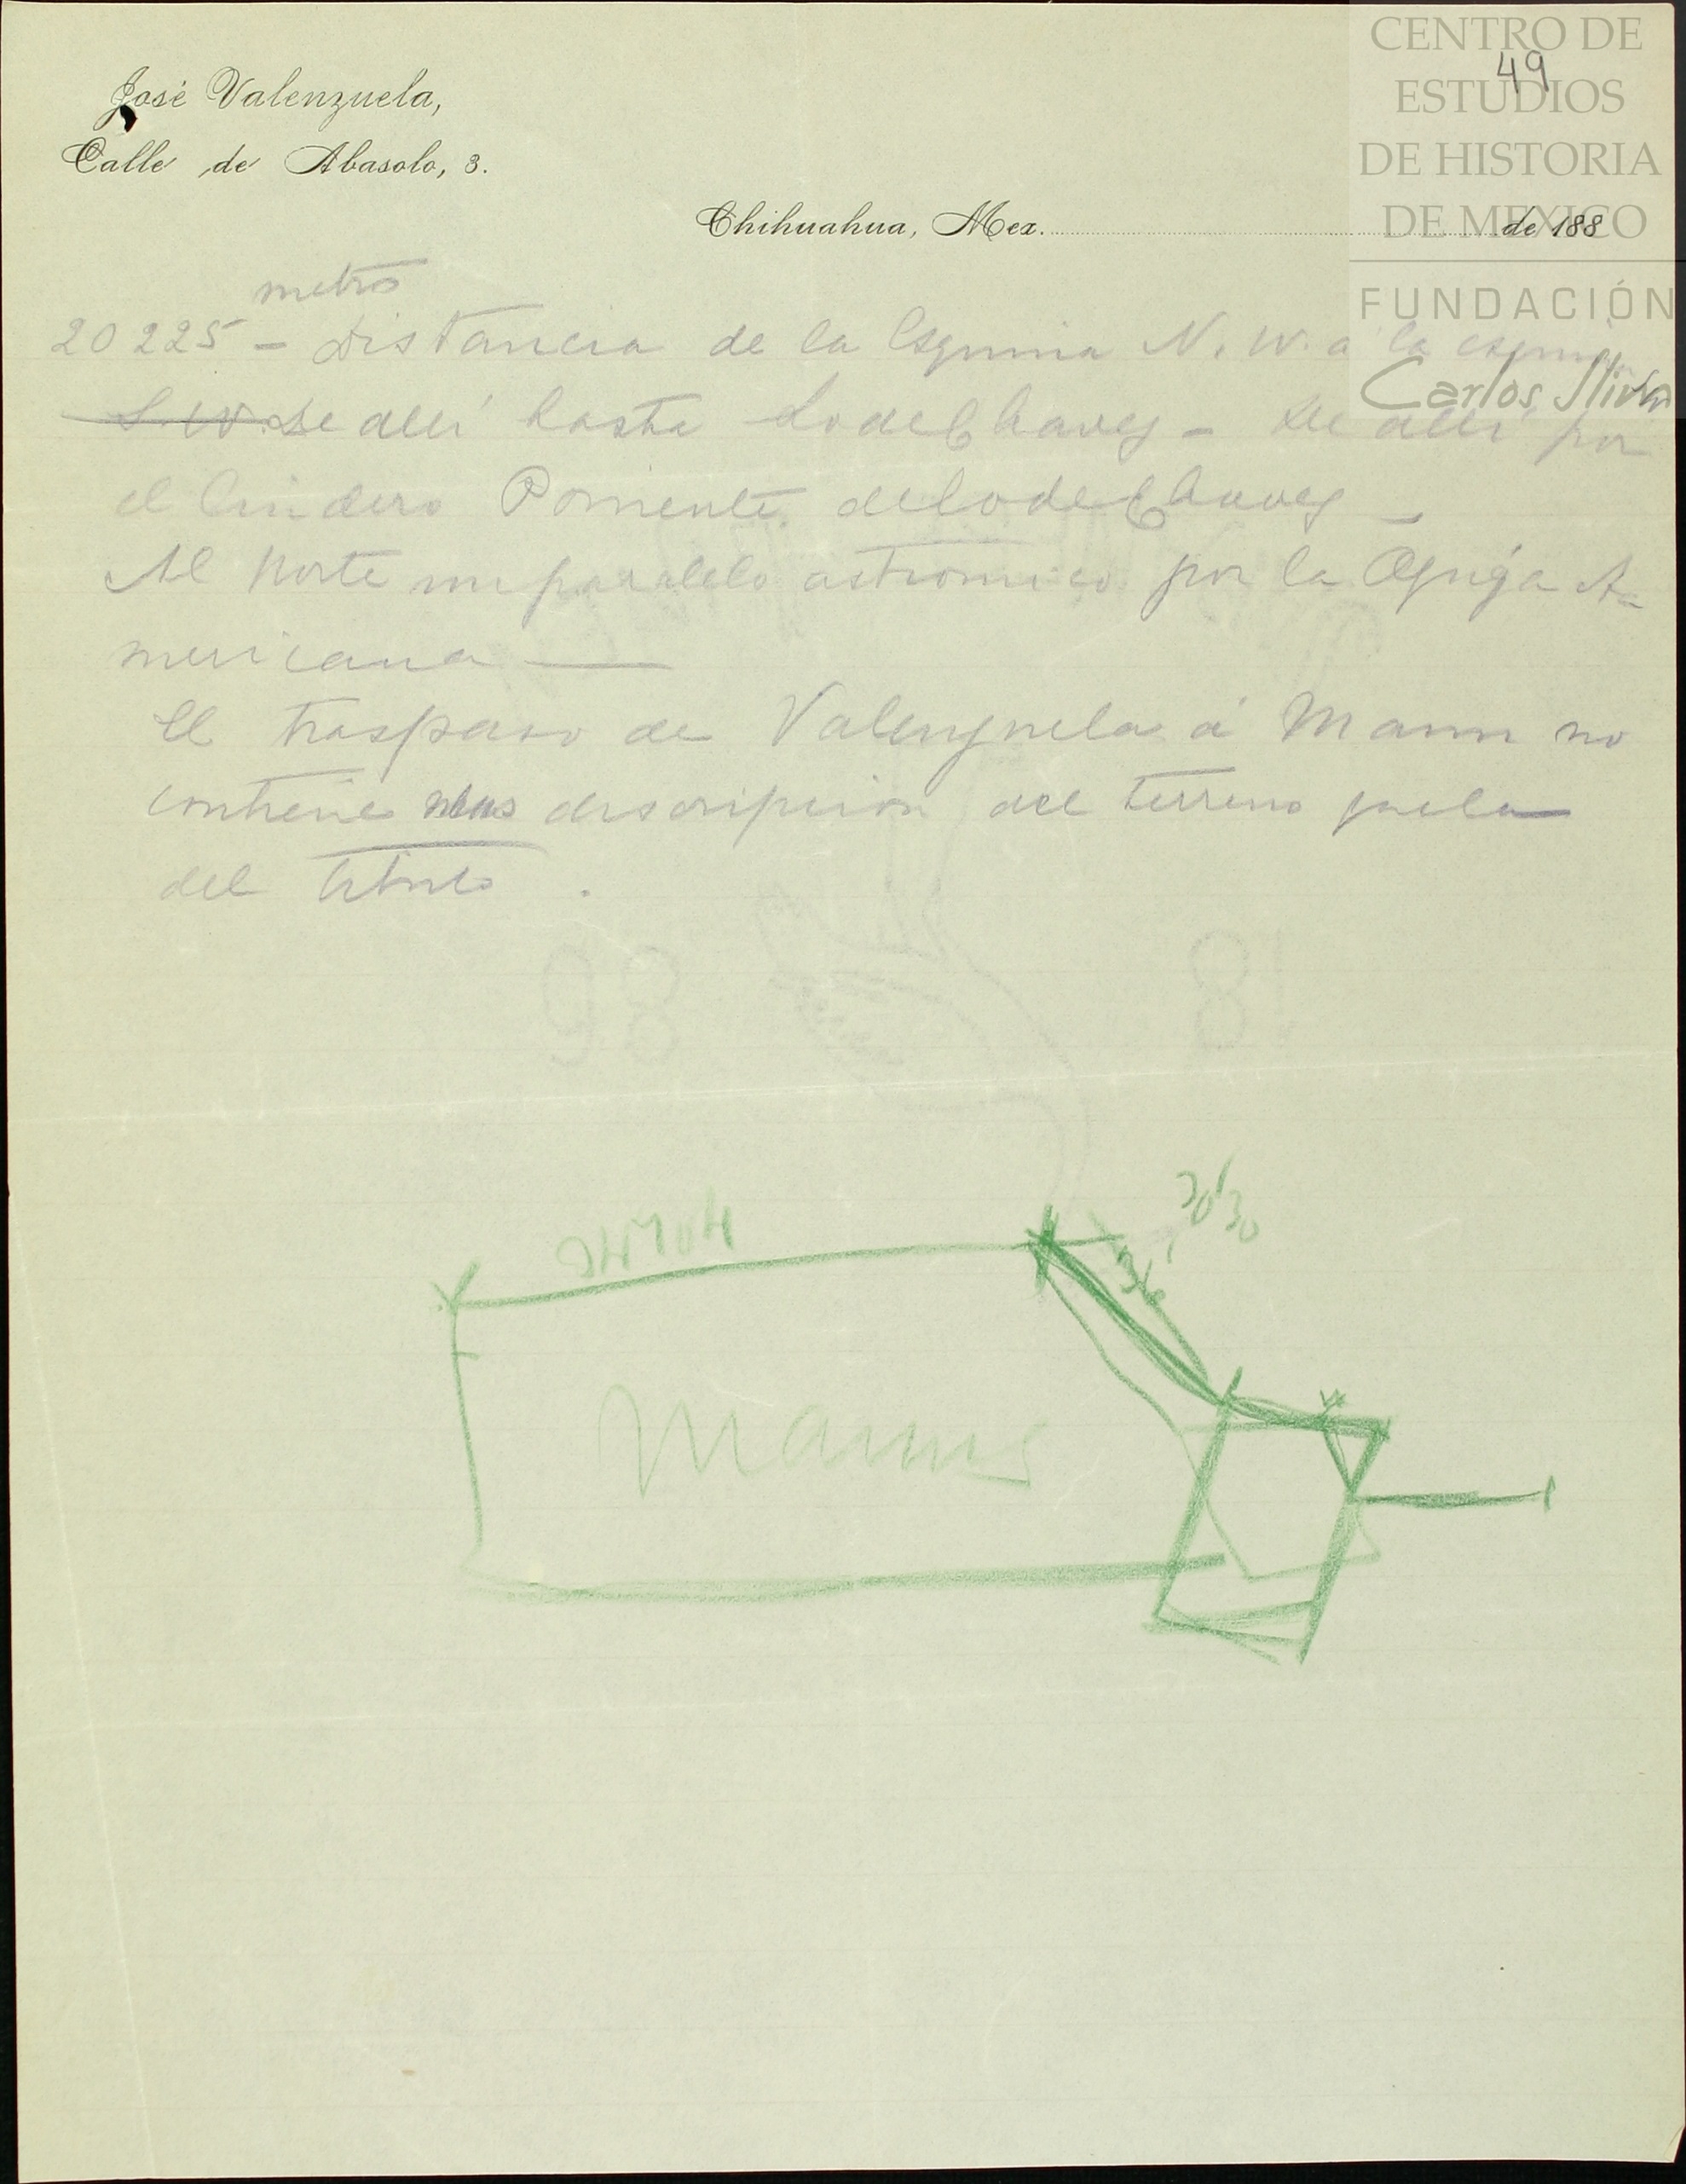 CENTRO DE
ESTUDIOS
DE HISTORIA
DE MEXICO
FUNDACIÓN
Carlos Slim
49
José Valenzuela,
Calle de Abasolo, 3.
Chihuahua, Mex. de 188
metros
20225 - Distancia de la Esquina N. W. a la esquina
S. W. De alli hasta Lo de Chavez - De alli por
el lindero Poniente de Lo de Chavez -
Al Norte un paralelo astronomico por la Aguja A-
mericana
El traspaso de Valenzuela á Mann no
contiene mas descripcion del terreno que la
del titulo .
Manns